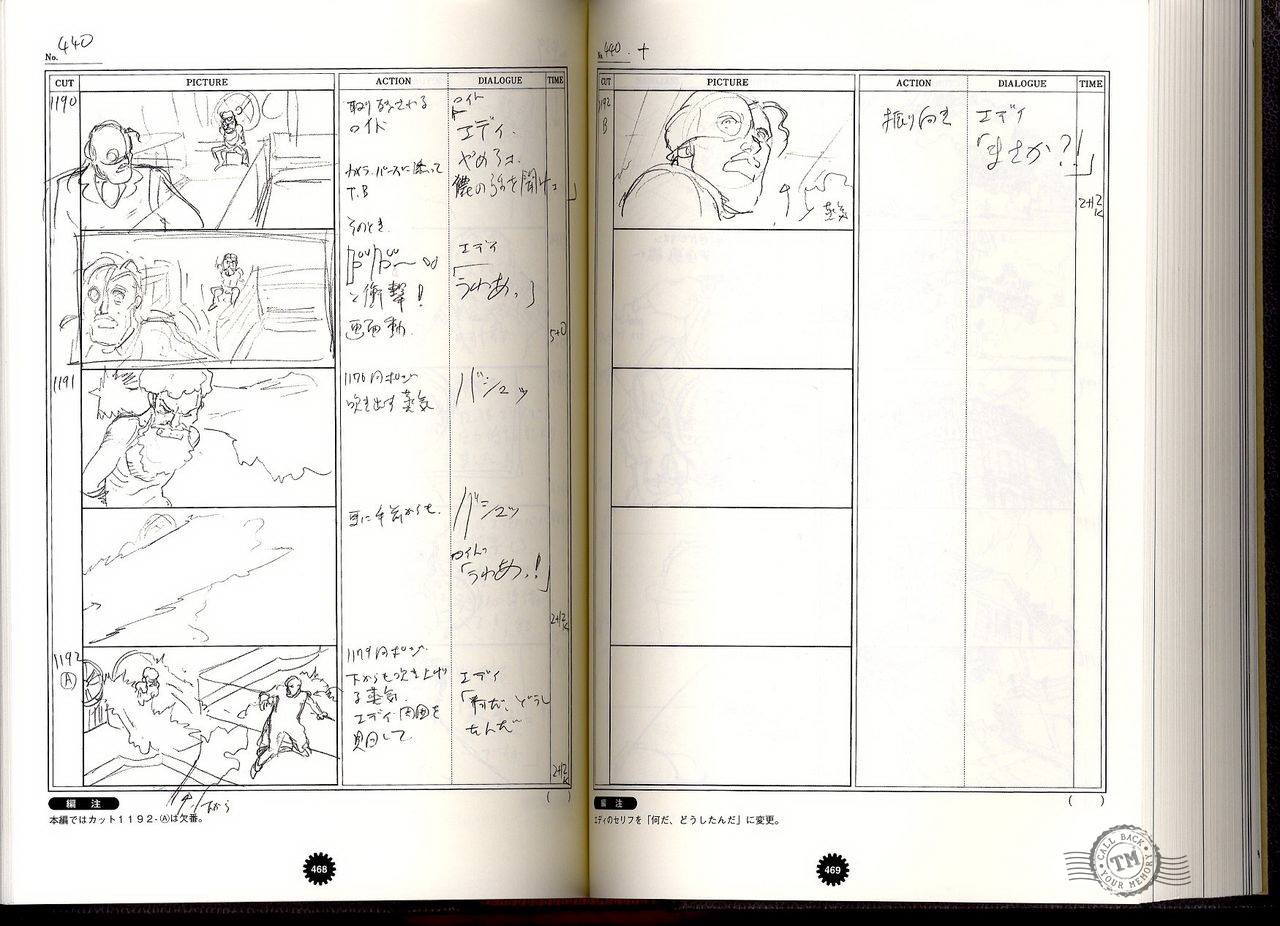 No. 440
CUT PICTURE ACTION DIALOGUE TIME
1190
取り残される
ロイド
カメラ、パースに添って
T.B
ロイド
エディ.
やめろ.
儂の話を聞け
そのとき
と衝撃!
画面動.
エディ
「うわあっ」
5+0
1191
吹き出す蒸気
バシュッ
更に手前からも.
バシュッ
ロイド
「うわあっ!」
2+12K
1192
A
下からも吹き上げ
る蒸気.
エディ周囲を
見回して
エディ
「何だ、どうし
たんだ」
2+12K
下から
編 注
本編ではカット1192-Ⓐは欠番。
468
No. 440.+
CUT PICTURE ACTION DIALOGUE TIME
1192
B
蒸気
振り向き
エディ
「まさか?!」
2+12K
編 注
エディのセリフを「何だ、どうしたんだ」に変更。
469
CALL BACK
TM
YOUR MEMORY